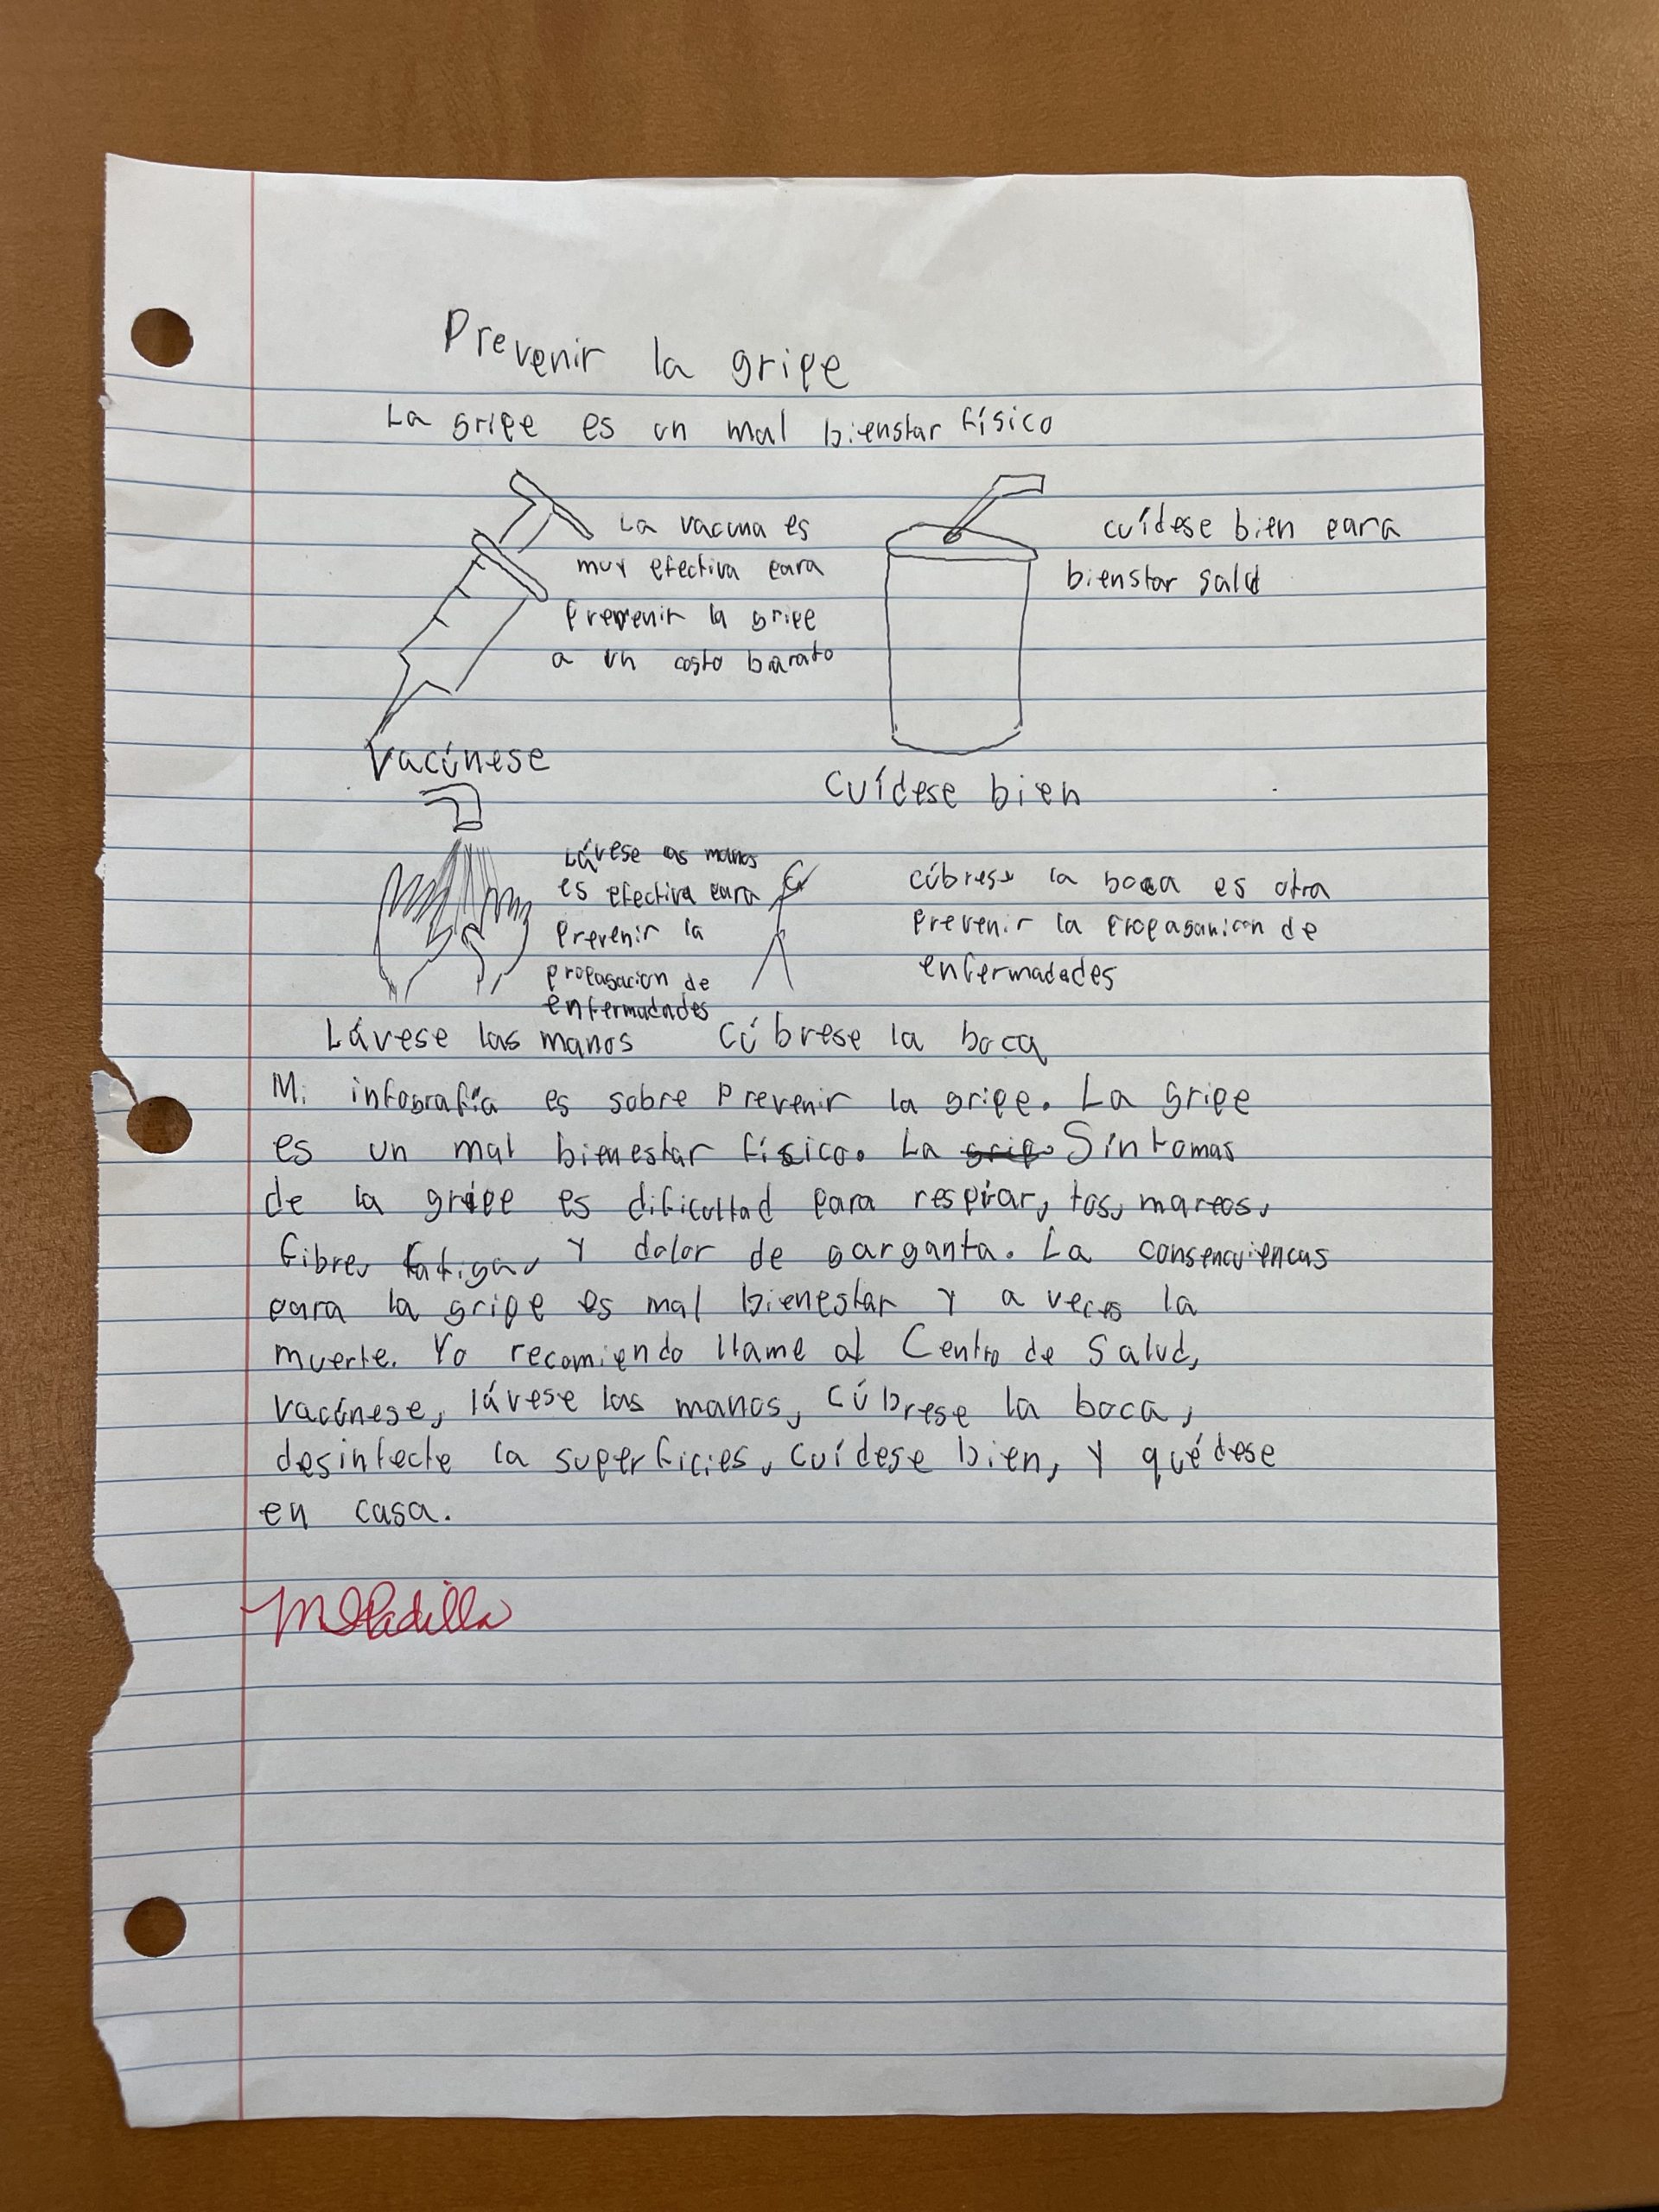 Prevenir la gripe
La gripe es un mal bienstar físico
La vacuna es
muy efectiva para
prevenir la gripe
a un costo barato
Vacúnese
cuídese bien para
bienstar salud
Cuídese bien
Lávese las manos
es efectiva para
prevenir la
propagacion de
enfermadades
Lávese las manos
cúbrese la boca es otra
prevenir la propaganicon de
enfermadades
Cúbrese la boca
Mi infografía es sobre prevenir la gripe. La gripe
es un mal bienestar físico. La Síntomas
de la gripe es dificultad para respirar, tos, mareos,
fibre, fatiga, y dolor de garganta. La consencuiencas
para la gripe es mal bienestar y a veces la
muerte. Yo recomiendo llame al Centro de Salud,
vacúnese, lávese las manos, cúbrese la boca,
desinfecte la superficies, cuídese bien, y quédese
en casa.
MPadilla